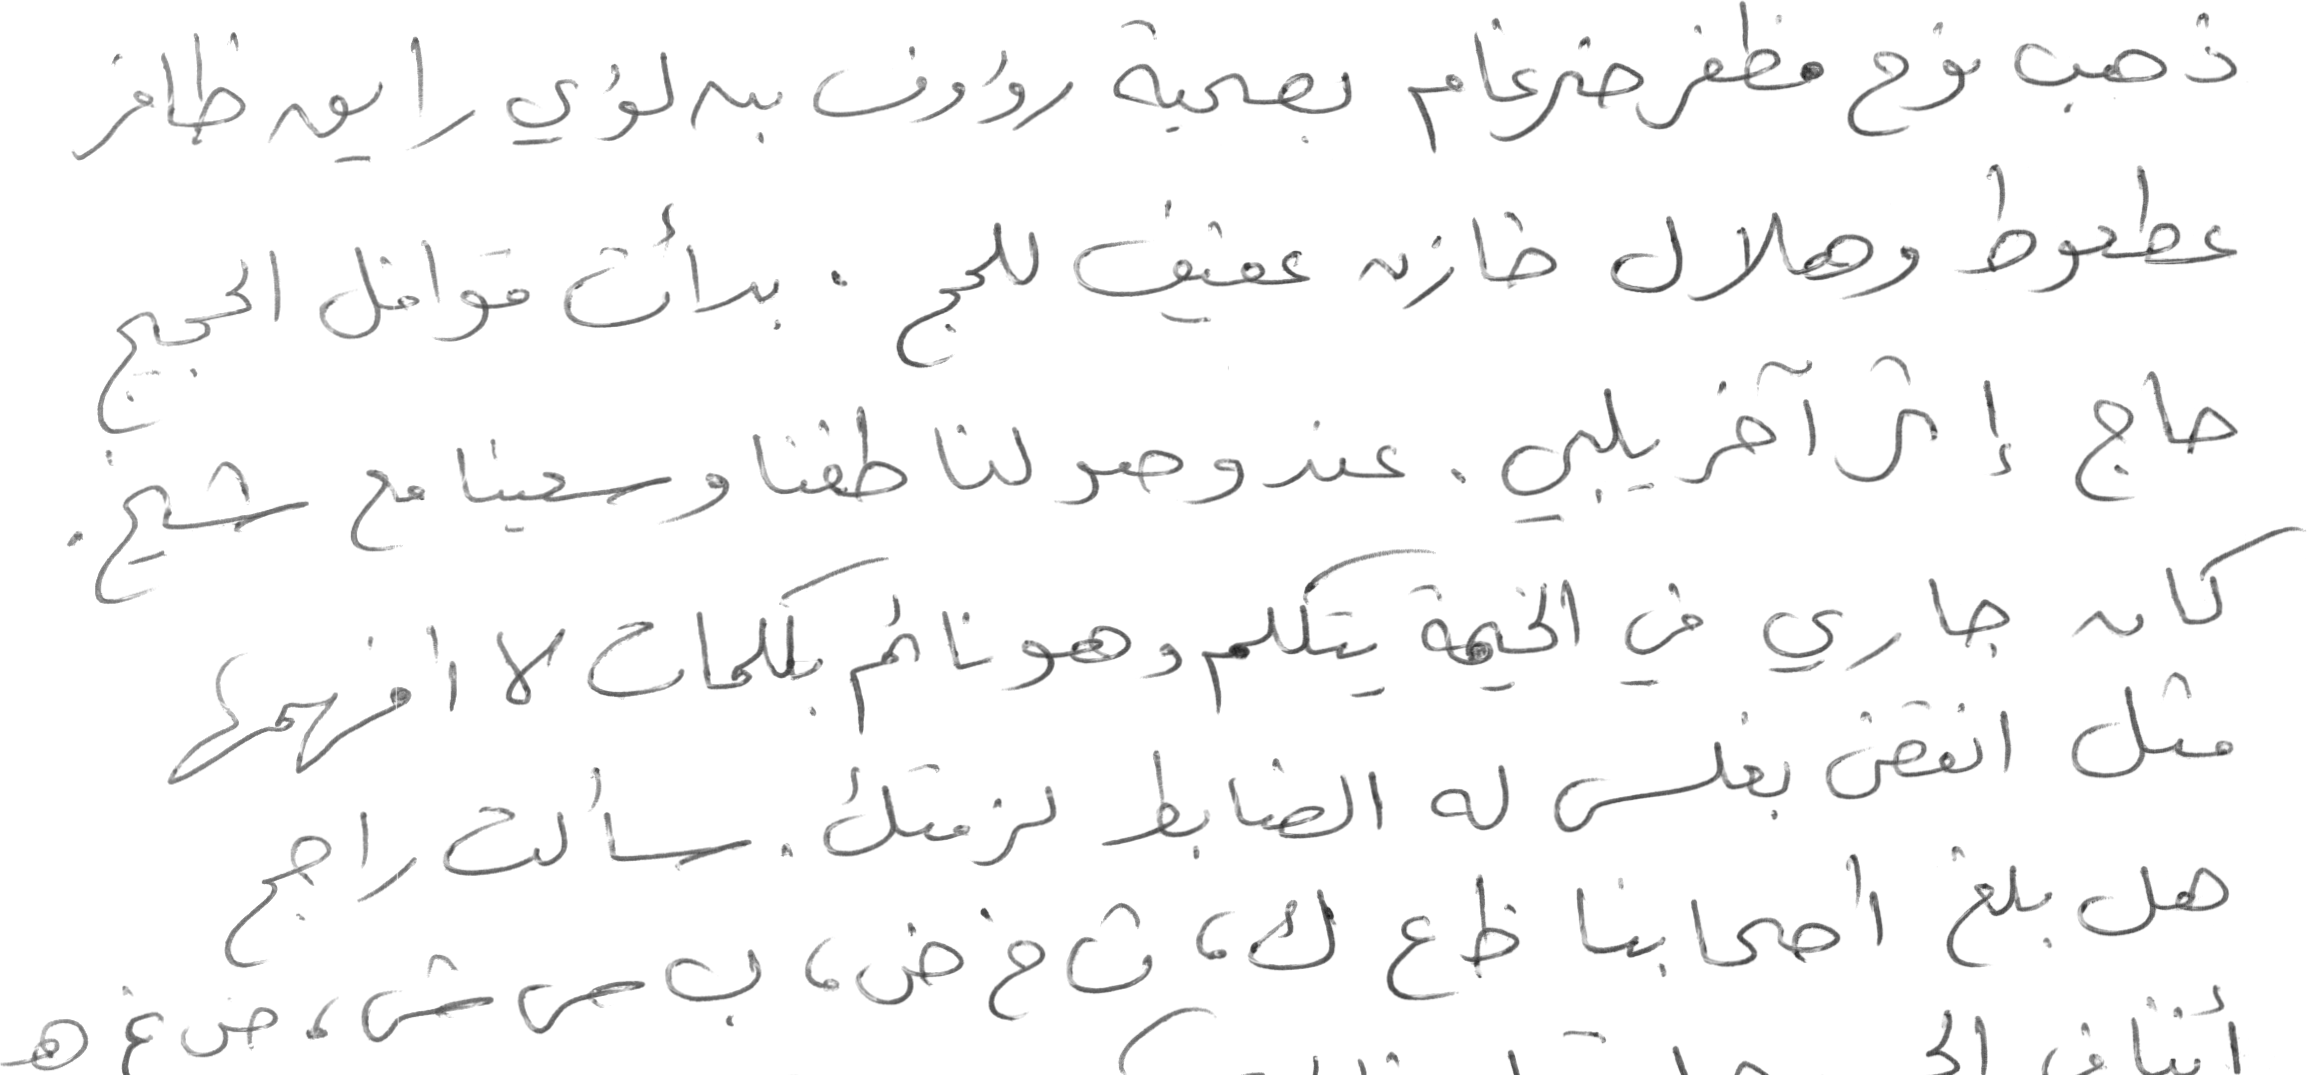 ذهب نوح مظفر ضرغام بصحبة رؤوف بن لؤي رايق ظافر
عطعوط وهلال خازن عفيف للحج . بدأت قوافل الحجيج
حاج إثر آخر يلبي . عند وصولنا طفنا وسعينا مع شيخ .
كان جاري في الخيمة يتكلم وهو نائم بكلمات لا افهمها
مثل انقض بغلس له الضابط لزمتك . سألت راجح
هل بلغ أصحابنا ظ ع ك ، ث خ ض ، ب س ش ، ص غ هـ